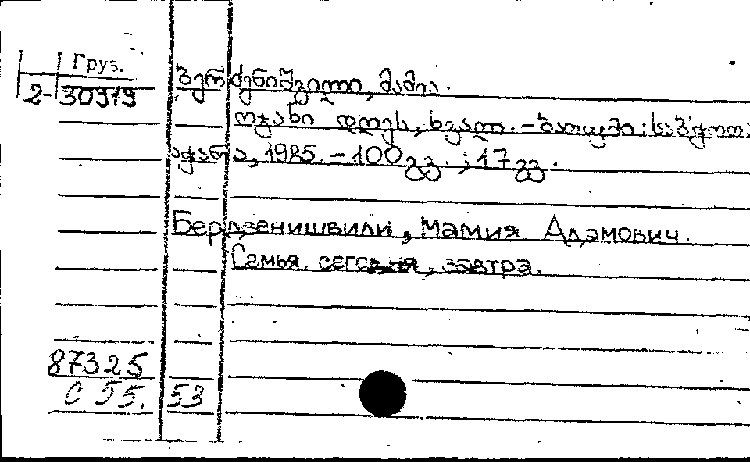 Груз.
2-30919
ბერძენიშვილი, მამია.
ოჯახი დღეს, ხვალ. - ბათუმი: საბჭოთა
აჭარა, 1985. - 100 გვ.; 17 გვ.
Бердзенишвили, Мамия Адамович.
Семья сегодня, завтра.
87325
С 55. 53